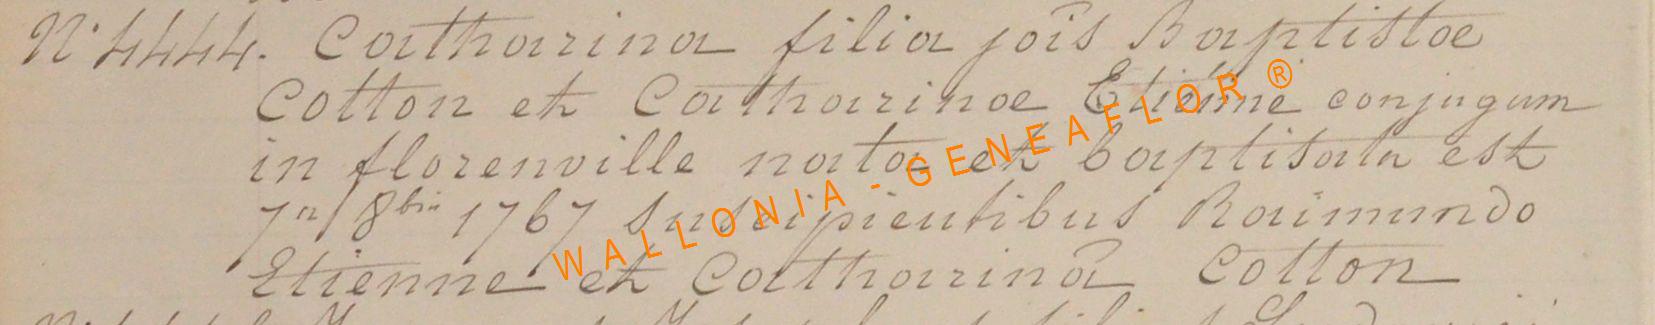 N° 4444. Catharina filia jois Baptistae
Cotton et Catharinae Etienne conjugum
in florenville nata et baptisata est
7a 8bris 1767 Suscipientibus Raimundo
Etienne et Catharinâ Cotton
WALLONIA - GENEAFLOR ®